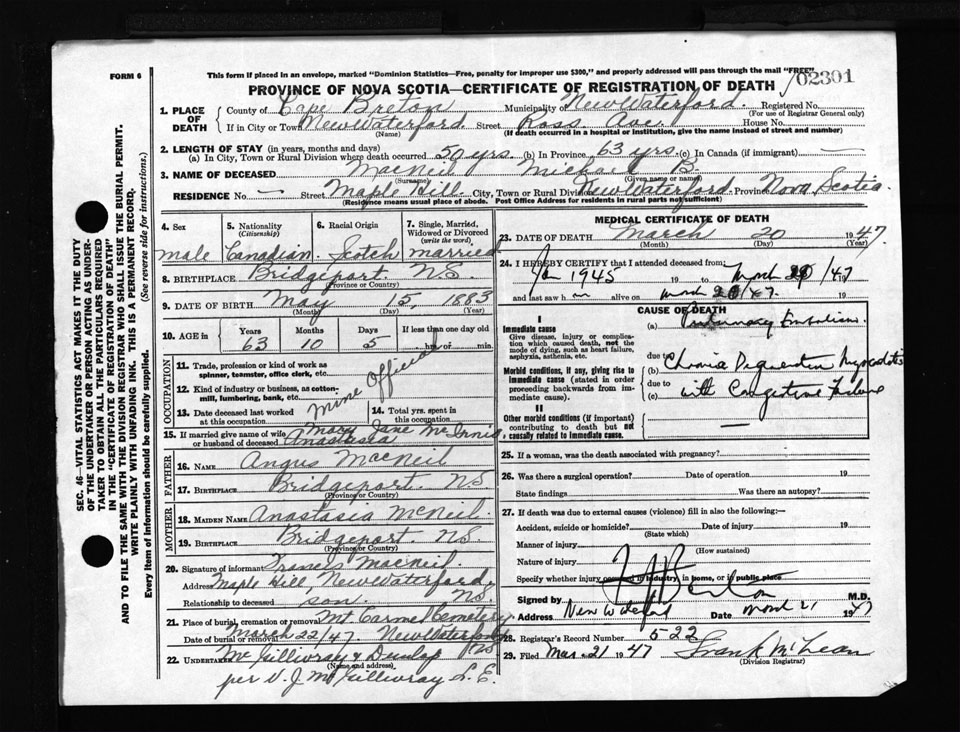 FORM 6
This form if placed in an envelope, marked "Dominion Statistics—Free, penalty for improper use $300," and properly addressed will pass through the mail "FREE"
02301
PROVINCE OF NOVA SCOTIA—CERTIFICATE OF REGISTRATION OF DEATH
1. PLACE OF DEATH
County of Cape Breton Municipality of New Waterford. Registered No.
(For use of Registrar General only)
If in City or Town New Waterford Street Ross Ave. House No.
(Name) (If death occurred in a hospital or institution, give the name instead of street and number)
2. LENGTH OF STAY (in years, months and days)
(a) In City, Town or Rural Division where death occurred 50 yrs. (b) In Province 63 yrs. (c) In Canada (if immigrant) —
3. NAME OF DECEASED MacNeil Michael B.
(Surname) (Given name or names)
RESIDENCE No. — Street Maple Hill City, Town or Rural Division New Waterford Province Nova Scotia.
(Residence means usual place of abode. Post Office Address for residents in rural parts not sufficient)
4. Sex 5. Nationality (Citizenship) 6. Racial Origin 7. Single, Married, Widowed or Divorced (write the word)
male Canadian. Scotch married
8. BIRTHPLACE Bridgeport. N.S.
(Province or Country)
9. DATE OF BIRTH May 15, 1883
(Month) (Day) (Year)
10. AGE in Years Months Days If less than one day old
63 10 5 hrs. or min.
OCCUPATION
11. Trade, profession or kind of work as spinner, teamster, office clerk, etc.
12. Kind of industry or business, as cotton-mill, lumbering, bank, etc.
Mine Official
13. Date deceased last worked at this occupation
14. Total yrs. spent in this occupation
15. If married give name of wife or husband of deceased Mary Jane McInnis
Anastasia
FATHER
16. NAME Angus MacNeil
17. BIRTHPLACE Bridgeport. N.S.
(Province or Country)
MOTHER
18. MAIDEN NAME Anastasia McNeil.
19. BIRTHPLACE Bridgeport. N.S.
(Province or Country)
20. Signature of informant Francis MacNeil.
Address Maple Hill, New Waterford, N.S.
Relationship to deceased son.
21. Place of burial, cremation or removal Mt Carmel Cemetery.
Date of burial or removal March 22/47. New Waterford N.S.
22. UNDERTAKER McGillivray & Dunlap
(Name and address)
per V. J. McGillivray L.E.
MEDICAL CERTIFICATE OF DEATH
23. DATE OF DEATH March 20 1947.
(Month) (Day) (Year)
24. I HEREBY CERTIFY that I attended deceased from:
Jan 1945 19 to March 20/47
and last saw h im alive on March 20/47. 19
CAUSE OF DEATH
I
Immediate cause
Give disease, injury, or complication which caused death, not the mode of dying, such as heart failure, asphyxia, asthenia, etc.
(a) Pulmonary Embolism.
due to
Morbid conditions, if any, giving rise to immediate cause (stated in order proceeding backwards from immediate).
(b) Chronic Myocarditis
due to
(c) with Congestive Failure
II
Other morbid conditions (if important) contributing to death but not causally related to immediate cause.
—
25. If a woman, was the death associated with pregnancy?
26. Was there a surgical operation? Date of operation 19
State findings Was there an autopsy?
27. If death was due to external causes (violence) fill in also the following:—
Accident, suicide or homicide? Date of injury 19
(State which)
Manner of injury
(How sustained)
Nature of injury
Specify whether injury occurred in industry, in home, or in public place
Signed by M.D.
Address New Waterford Date March 21 1947
28. Registrar's Record Number 522
29. Filed Mar. 21 1947 Frank McLean
(Division Registrar)
SEC. 46—VITAL STATISTICS ACT MAKES IT THE DUTY
OF THE UNDERTAKER OR PERSON ACTING AS UNDER-
TAKER TO OBTAIN ALL THE PARTICULARS REQUIRED
IN THE "CERTIFICATE OF REGISTRATION OF DEATH"
AND TO FILE THE SAME WITH THE DIVISION REGISTRAR WHO SHALL ISSUE THE BURIAL PERMIT.
WRITE PLAINLY WITH UNFADING INK. THIS IS A PERMANENT RECORD.
Every item of information should be carefully supplied. (See reverse side for instructions.)